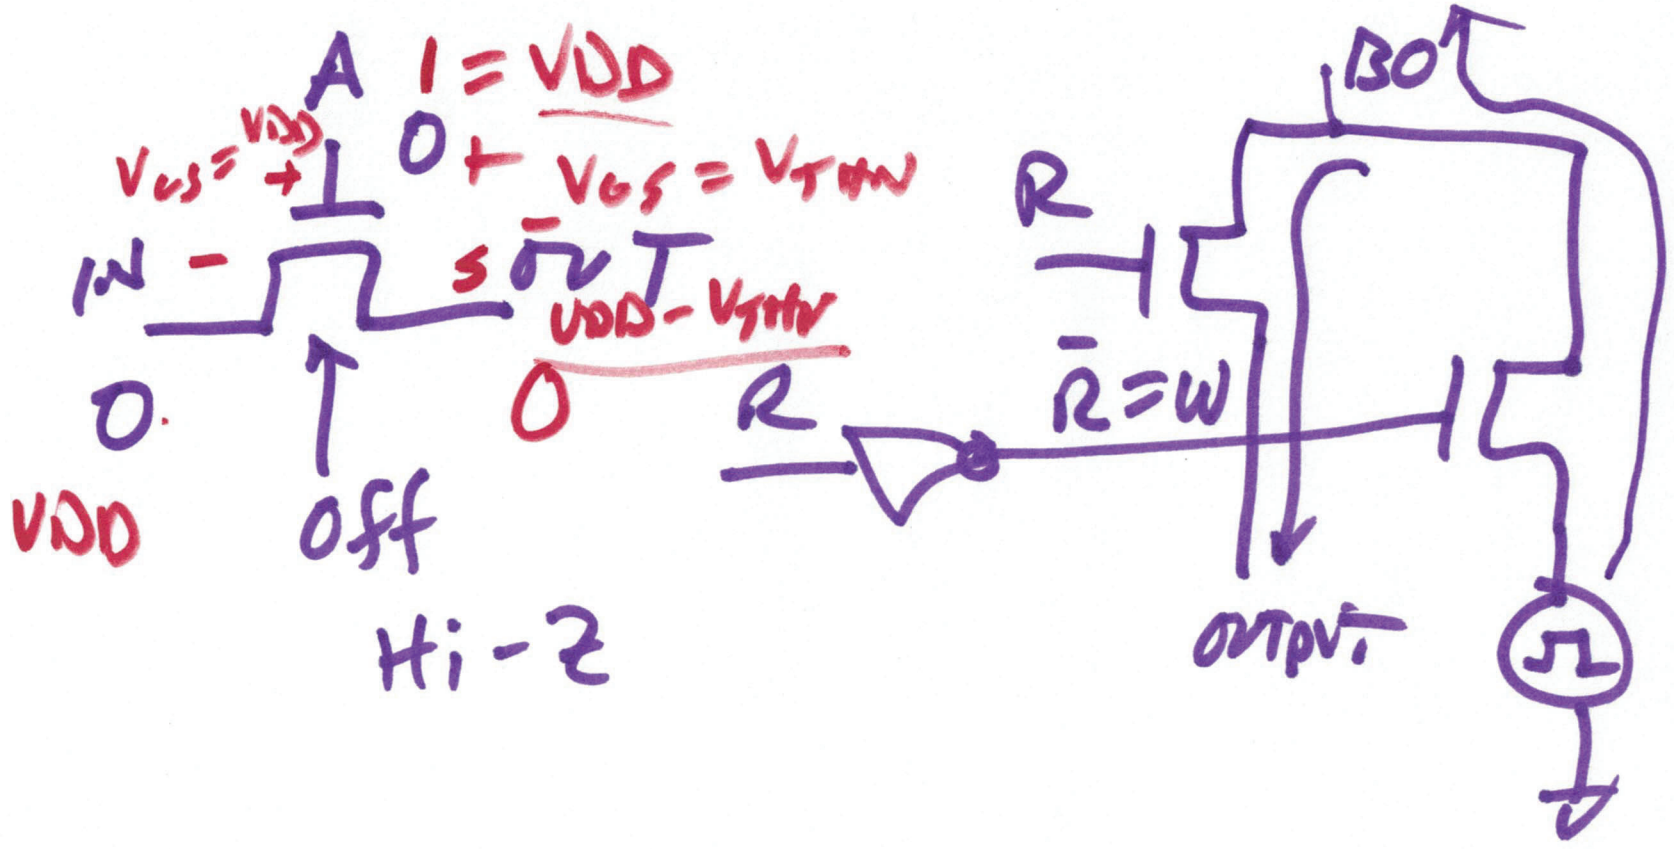 A 1 = VDD
VGS = VDD
+
0 + VGS = VTHN
-
IN - S OUT
VDD - VTHN
0. 0
VDD
Off
Hi-Z
BO
R
R̄ = W
R
OUTPUT